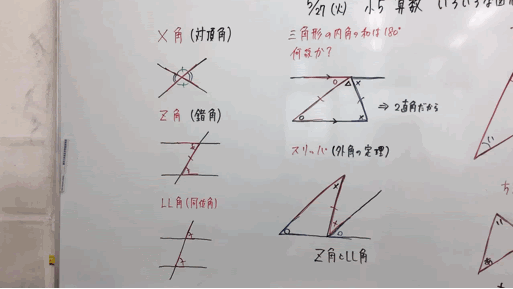 5/27(火) 小5 算数
X角(対頂角)
三角形の内角の和は180°
何故か?
Z角(錯角)
⇒ 2直角だから
スリッパ(外角の定理)
LL角(同位角)
Z角とLL角